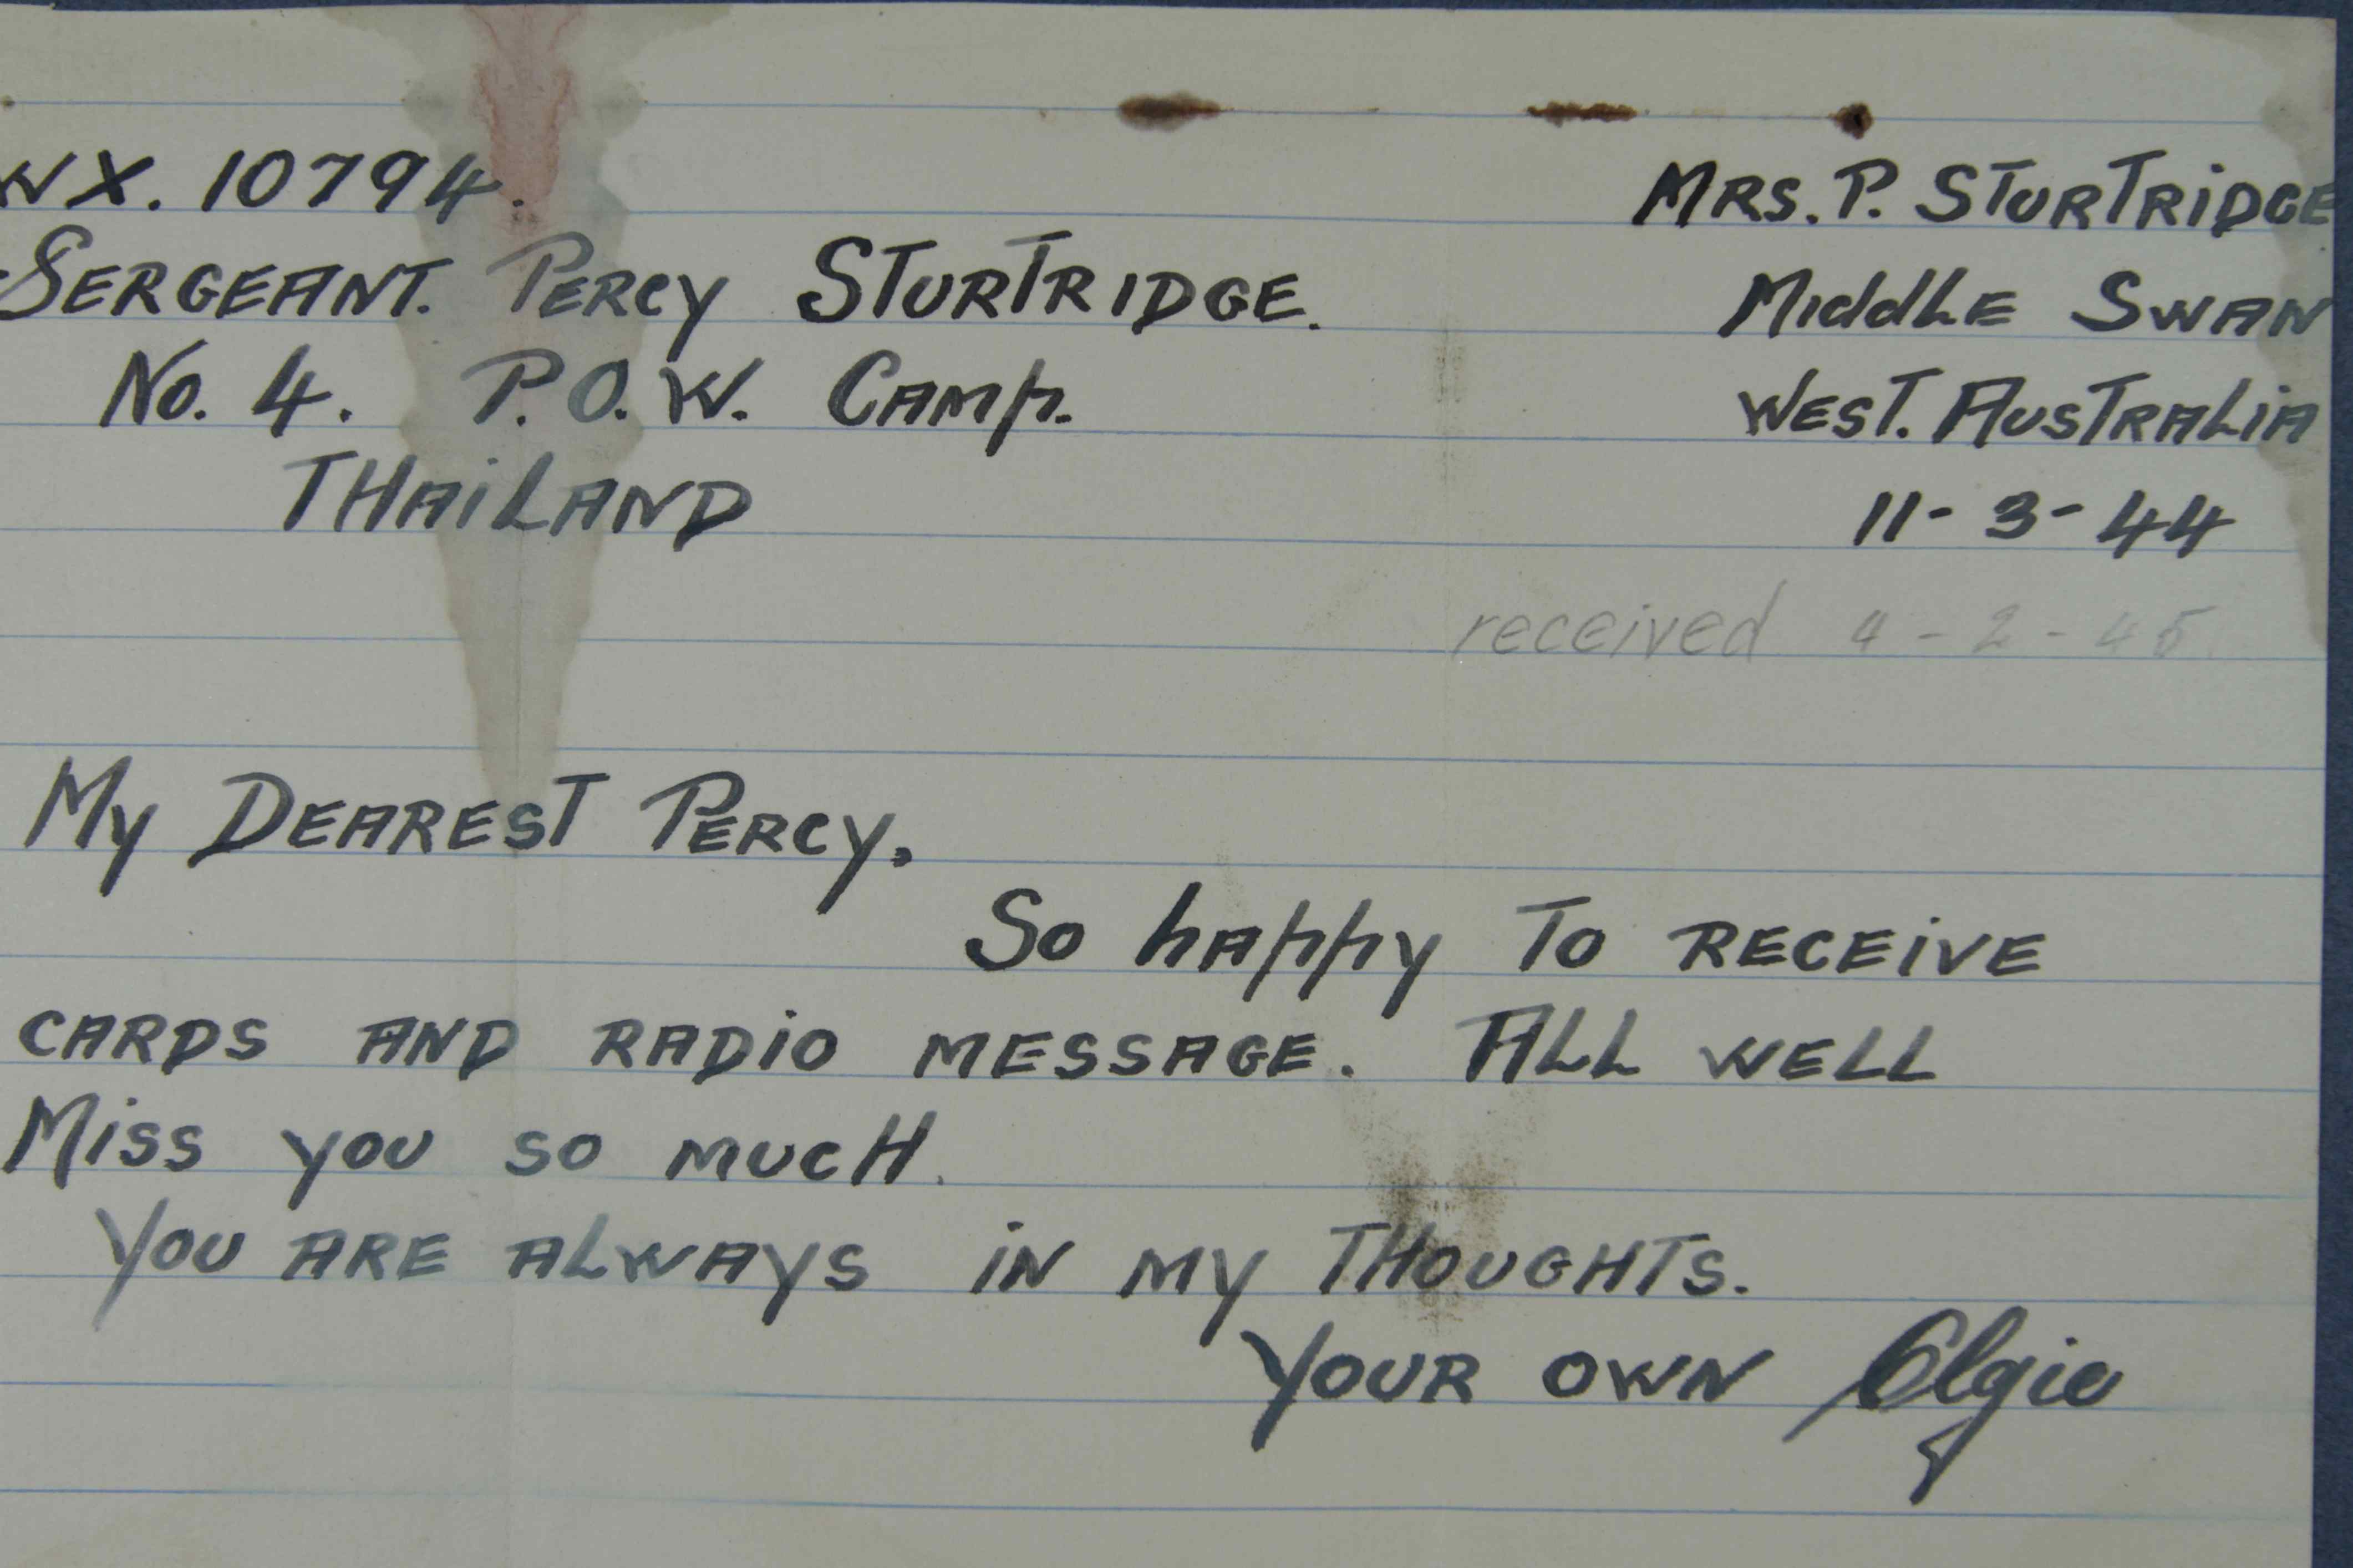 WX. 10794.
SERGEANT. PERCY STURTRIDGE.
No. 4. P.O.W. CAMP.
THAiLAND
MRS. P. STURTRiDGE
MiddLE SWAN
WEST. AUSTRALiA
11-3-44
received 4-2-45.
My DEAREST PERCY,
So hAppy To RECEiVE
CARDS AND RADiO MESSAGE. ALL WELL
MiSS YOU SO MUCH.
YOU ARE ALWAYS iN MY THOUGHTS.
YOUR OWN Elgie